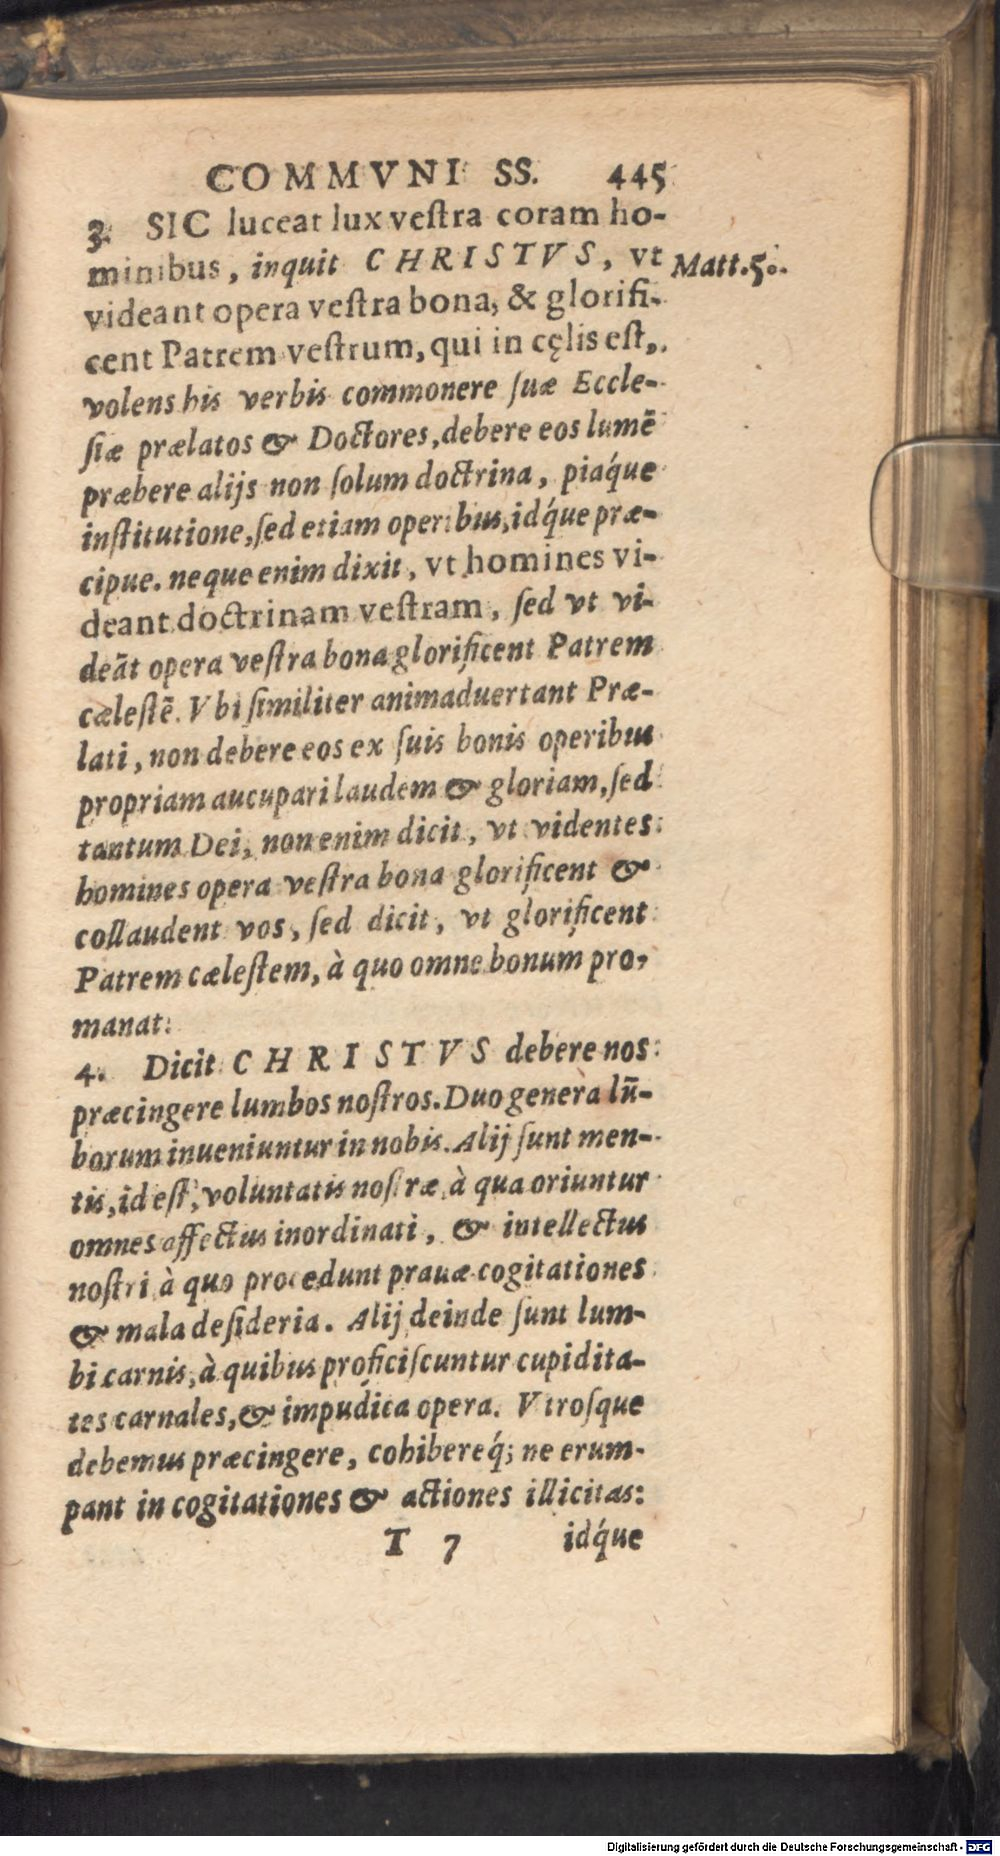 COMMVNI SS. 445
3. SIC luceat lux veſtra coram ho-
minibus, inquit CHRISTVS, vt
Matt.5.
videant opera veſtra bona, & glorifi-
cent Patrem veſtrum, qui in cęlis eſt,
volens his verbis commonere ſuæ Eccle-
ſiæ prælatos & Doctores, debere eos lumē
præbere alijs non ſolum doctrina, piaq́ue
inſtitutione, ſed etiam operibus, idq́ue præ-
cipue. neque enim dixit, vt homines vi-
deant doctrinam veſtram, ſed vt vi-
deāt opera veſtra bona glorificent Patrem
cæleſtē. Vbi ſimiliter animaduertant Præ-
lati, non debere eos ex ſuis bonis operibus
propriam aucupari laudem & gloriam, ſed
tantum Dei, non enim dicit, vt videntes
homines opera veſtra bona glorificent &
collaudent vos, ſed dicit, vt glorificent
Patrem cæleſtem, à quo omne bonum pro-
manat.
4. Dicit CHRISTVS debere nos
præcingere lumbos noſtros. Duo genera lū-
borum inueniuntur in nobis. Alij ſunt men-
tis, id eſt, voluntatis noſtræ, à qua oriuntur
omnes affectus inordinati, & intellectus
noſtri à quo procedunt prauæ cogitationes
& mala deſideria. Alij deinde ſunt lum-
bi carnis, à quibus proficiſcuntur cupidita-
tes carnales, & impudica opera. Vtroſque
debemus præcingere, cohibereq́; ne erum-
pant in cogitationes & actiones illicitas:
T 7 idq́ue
Digitalisierung gefördert durch die Deutsche Forschungsgemeinschaft - DFG